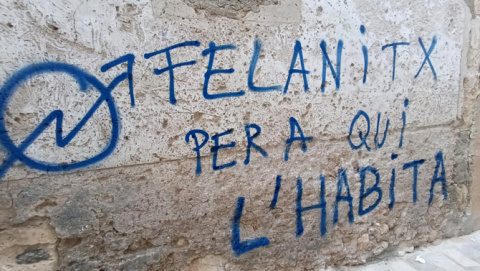 FELANiTX
PER A QUi
L'HABiTA